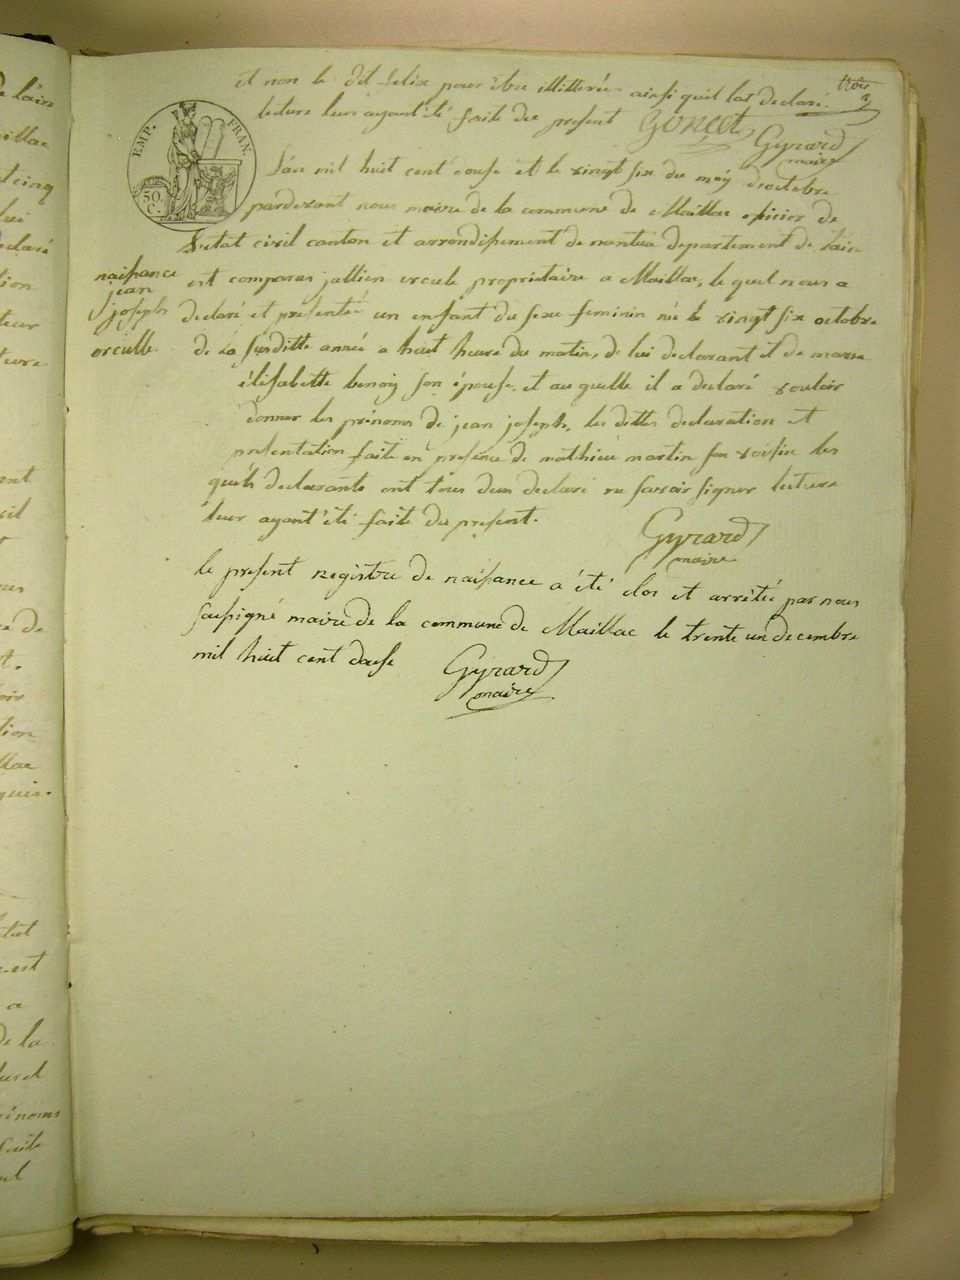 trois
et non le dit felix pour être illitterée ainsi quil la declaré.
lecture leur ayant été faite du present Goncet Gyrard
maire
EMP. FRAN.
50
C.
L'an mil huit cent douse et le vingt six du moy d'octobre
pardevant nous maire de la commune de Maillac oficier de
L'etat civil canton et arrondissement de nantua departement de l'ain
naissance
jean
joseph
erculle
est comparus jallien ercule propriétaire a Maillac, le quel nous a
declaré et presenté un enfant du sexe feminin né le vingt six octobre
de la susditte année a huit heure du matin, de lui declarant et de marie
élisabette benoy son épouse, et au quelle il a declaré vouloir
donner les prénoms de jean joseph, les dittes declaration et
presentation faite en presence de mathieu martin son voisin les
quels declarants ont tous deux declaré ne savoir signer lecture
leur ayant été faite du present. Gyrard
maire
le present registre de naissance a été clos et arrêtée par nous
sousigné maire de la commune de Maillac le trente un decembre
mil huit cent douse Gyrard
maire